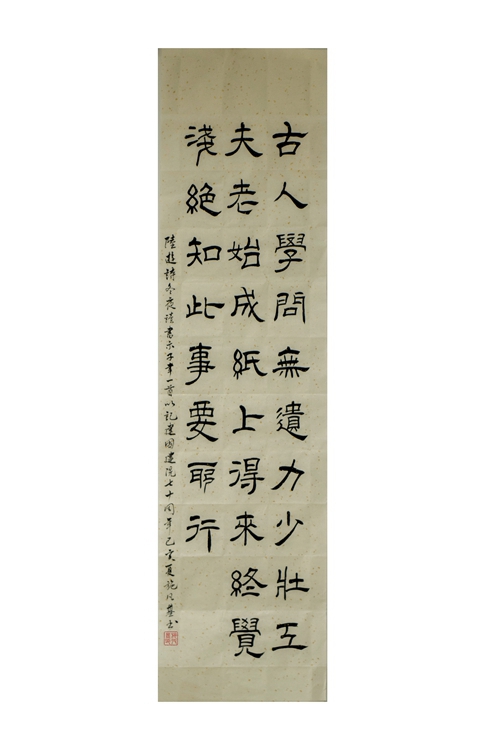 古人學問無遺力少壯工
夫老始成紙上得來終覺
淺絕知此事要躬行
陸游詩冬夜讀書示子聿一首以記建國建院七十周年己亥夏施書